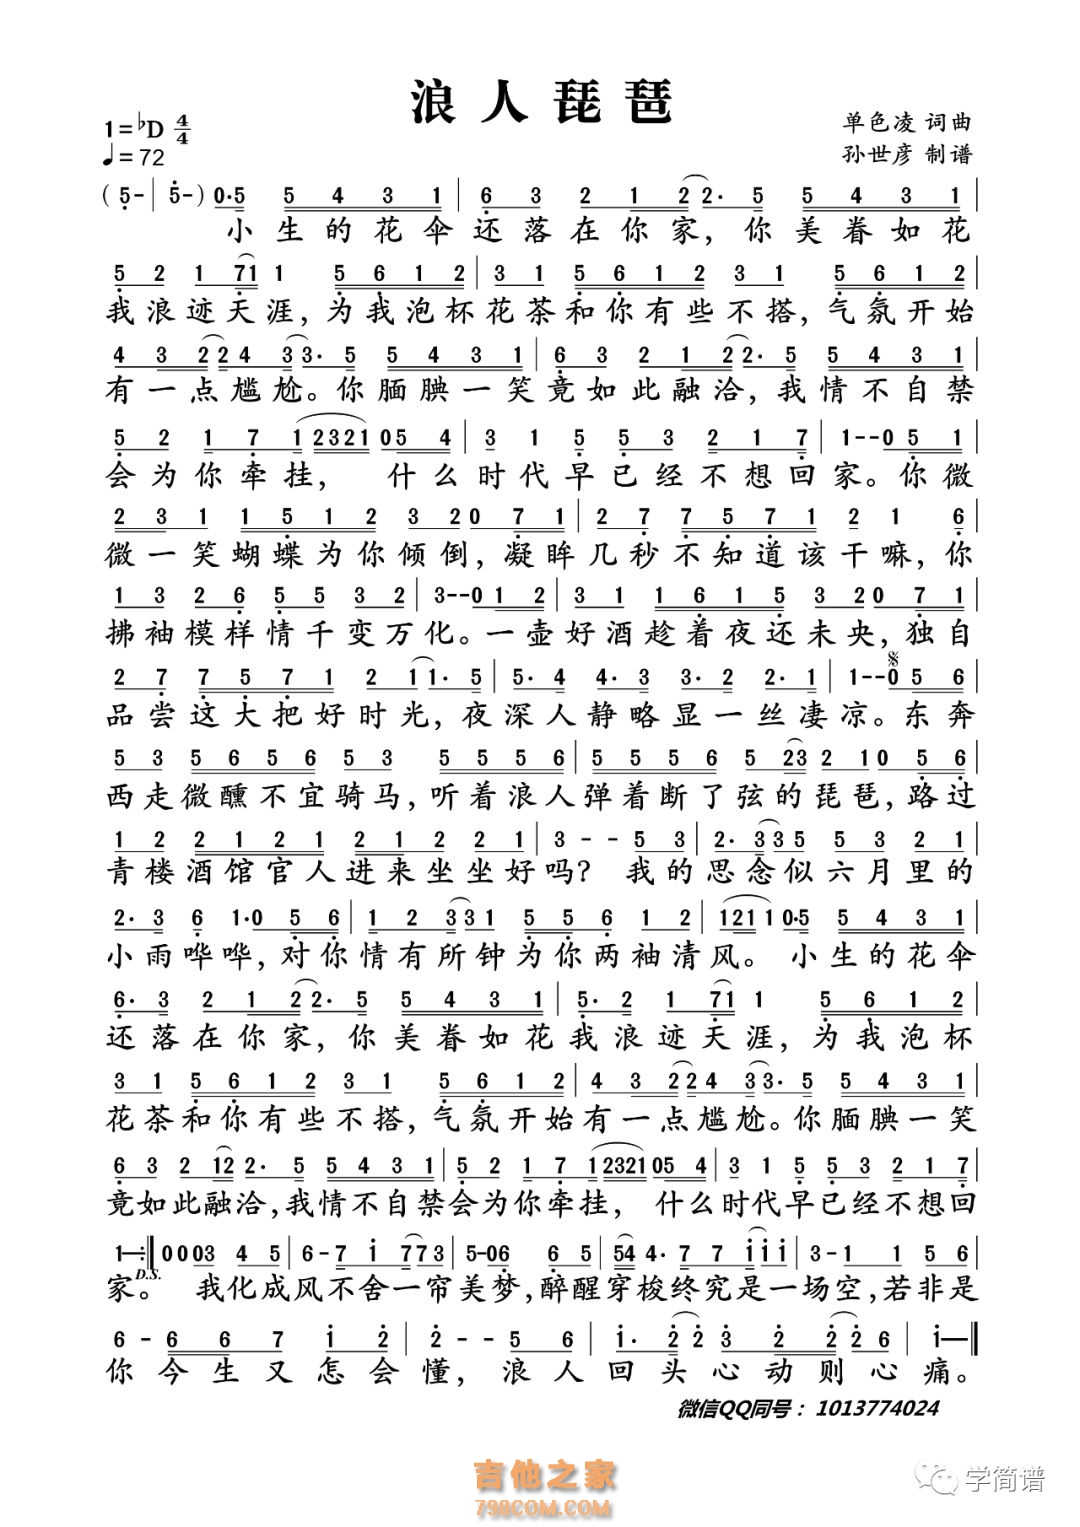 浪人琵琶
1=♭D 4/4
单色凌 词曲
♩=72
孙世彦 制谱
(5-|5-)0·5 5 4 3 1|6 3 2 1 22·5 5 4 3 1|
小生的花伞还落在你家，你美眷如花
5 2 1 71 1 5 6 1 2|3 1 5 6 1 2 3 1 5 6 1 2|
我浪迹天涯，为我泡杯花茶和你有些不搭，气氛开始
4 3 22 4 33·5 5 4 3 1|6 3 2 1 22·5 5 4 3 1|
有一点尴尬。你腼腆一笑竟如此融洽，我情不自禁
5 2 1 7 1 2321 05 4|3 1 5 5 3 2 1 7|1--0 5 1|
会为你牵挂， 什么时代早已经不想回家。你微
2 3 1 1 5 1 2 3 20 7 1|2 7 7 5 7 1 2 1 6|
微一笑蝴蝶为你倾倒，凝眸几秒不知道该干嘛，你
1 3 2 6 5 5 3 2|3--0 1 2|3 1 1 6 1 5 3 20 7 1|
拂袖模样情千变万化。一壶好酒趁着夜还未央，独自
2 7 7 5 7 1 2 11·5|5·4 4·3 3·2 2·1|1--0 5 6|
品尝这大把好时光，夜深人静略显一丝凄凉。东奔
5 3 5 6 5 6 5 3 5 5 5 6|5 5 5 6 5 23 2 10 5 6|
西走微醺不宜骑马，听着浪人弹着断了弦的琵琶，路过
1 2 2 1 2 1 2 1 2 2 1|3 - - 5 3|2·3 3 5 5 3 2 1|
青楼酒馆官人进来坐坐好吗？ 我的思念似六月里的
2·3 6 1·0 5 6|1 2 33 1 5 5 6 1 2|121 1 0·5 5 4 3 1|
小雨哗哗，对你情有所钟为你两袖清风。 小生的花伞
6·3 2 1 22·5 5 4 3 1|5·2 1 71 1 5 6 1 2|
还落在你家，你美眷如花我浪迹天涯，为我泡杯
3 1 5 6 1 2 3 1 5 6 1 2|4 3 22 4 33·5 5 4 3 1|
花茶和你有些不搭，气氛开始有一点尴尬。你腼腆一笑
6 3 2 12 2·5 5 4 3 1|5 2 1 7 1 2321 05 4|3 1 5 5 3 2 1 7|
竟如此融洽，我情不自禁会为你牵挂， 什么时代早已经不想回
1—:‖0 0 03 4 5|6-7 1 77 3|5-06 6 5|54 4·7 7 1 1 1|3-1 1 5 6|
D.S.
家。 我化成风不舍一帘美梦，醉醒穿梭终究是一场空，若非是
6 - 6 6 7 1 2|2 - 5 6|1·2 2 3 2 2 2 6|1—‖
你今生又怎会懂，浪人回头心动则心痛。
微信QQ同号：1013774024
吉他之家
798COM.COM
学简谱